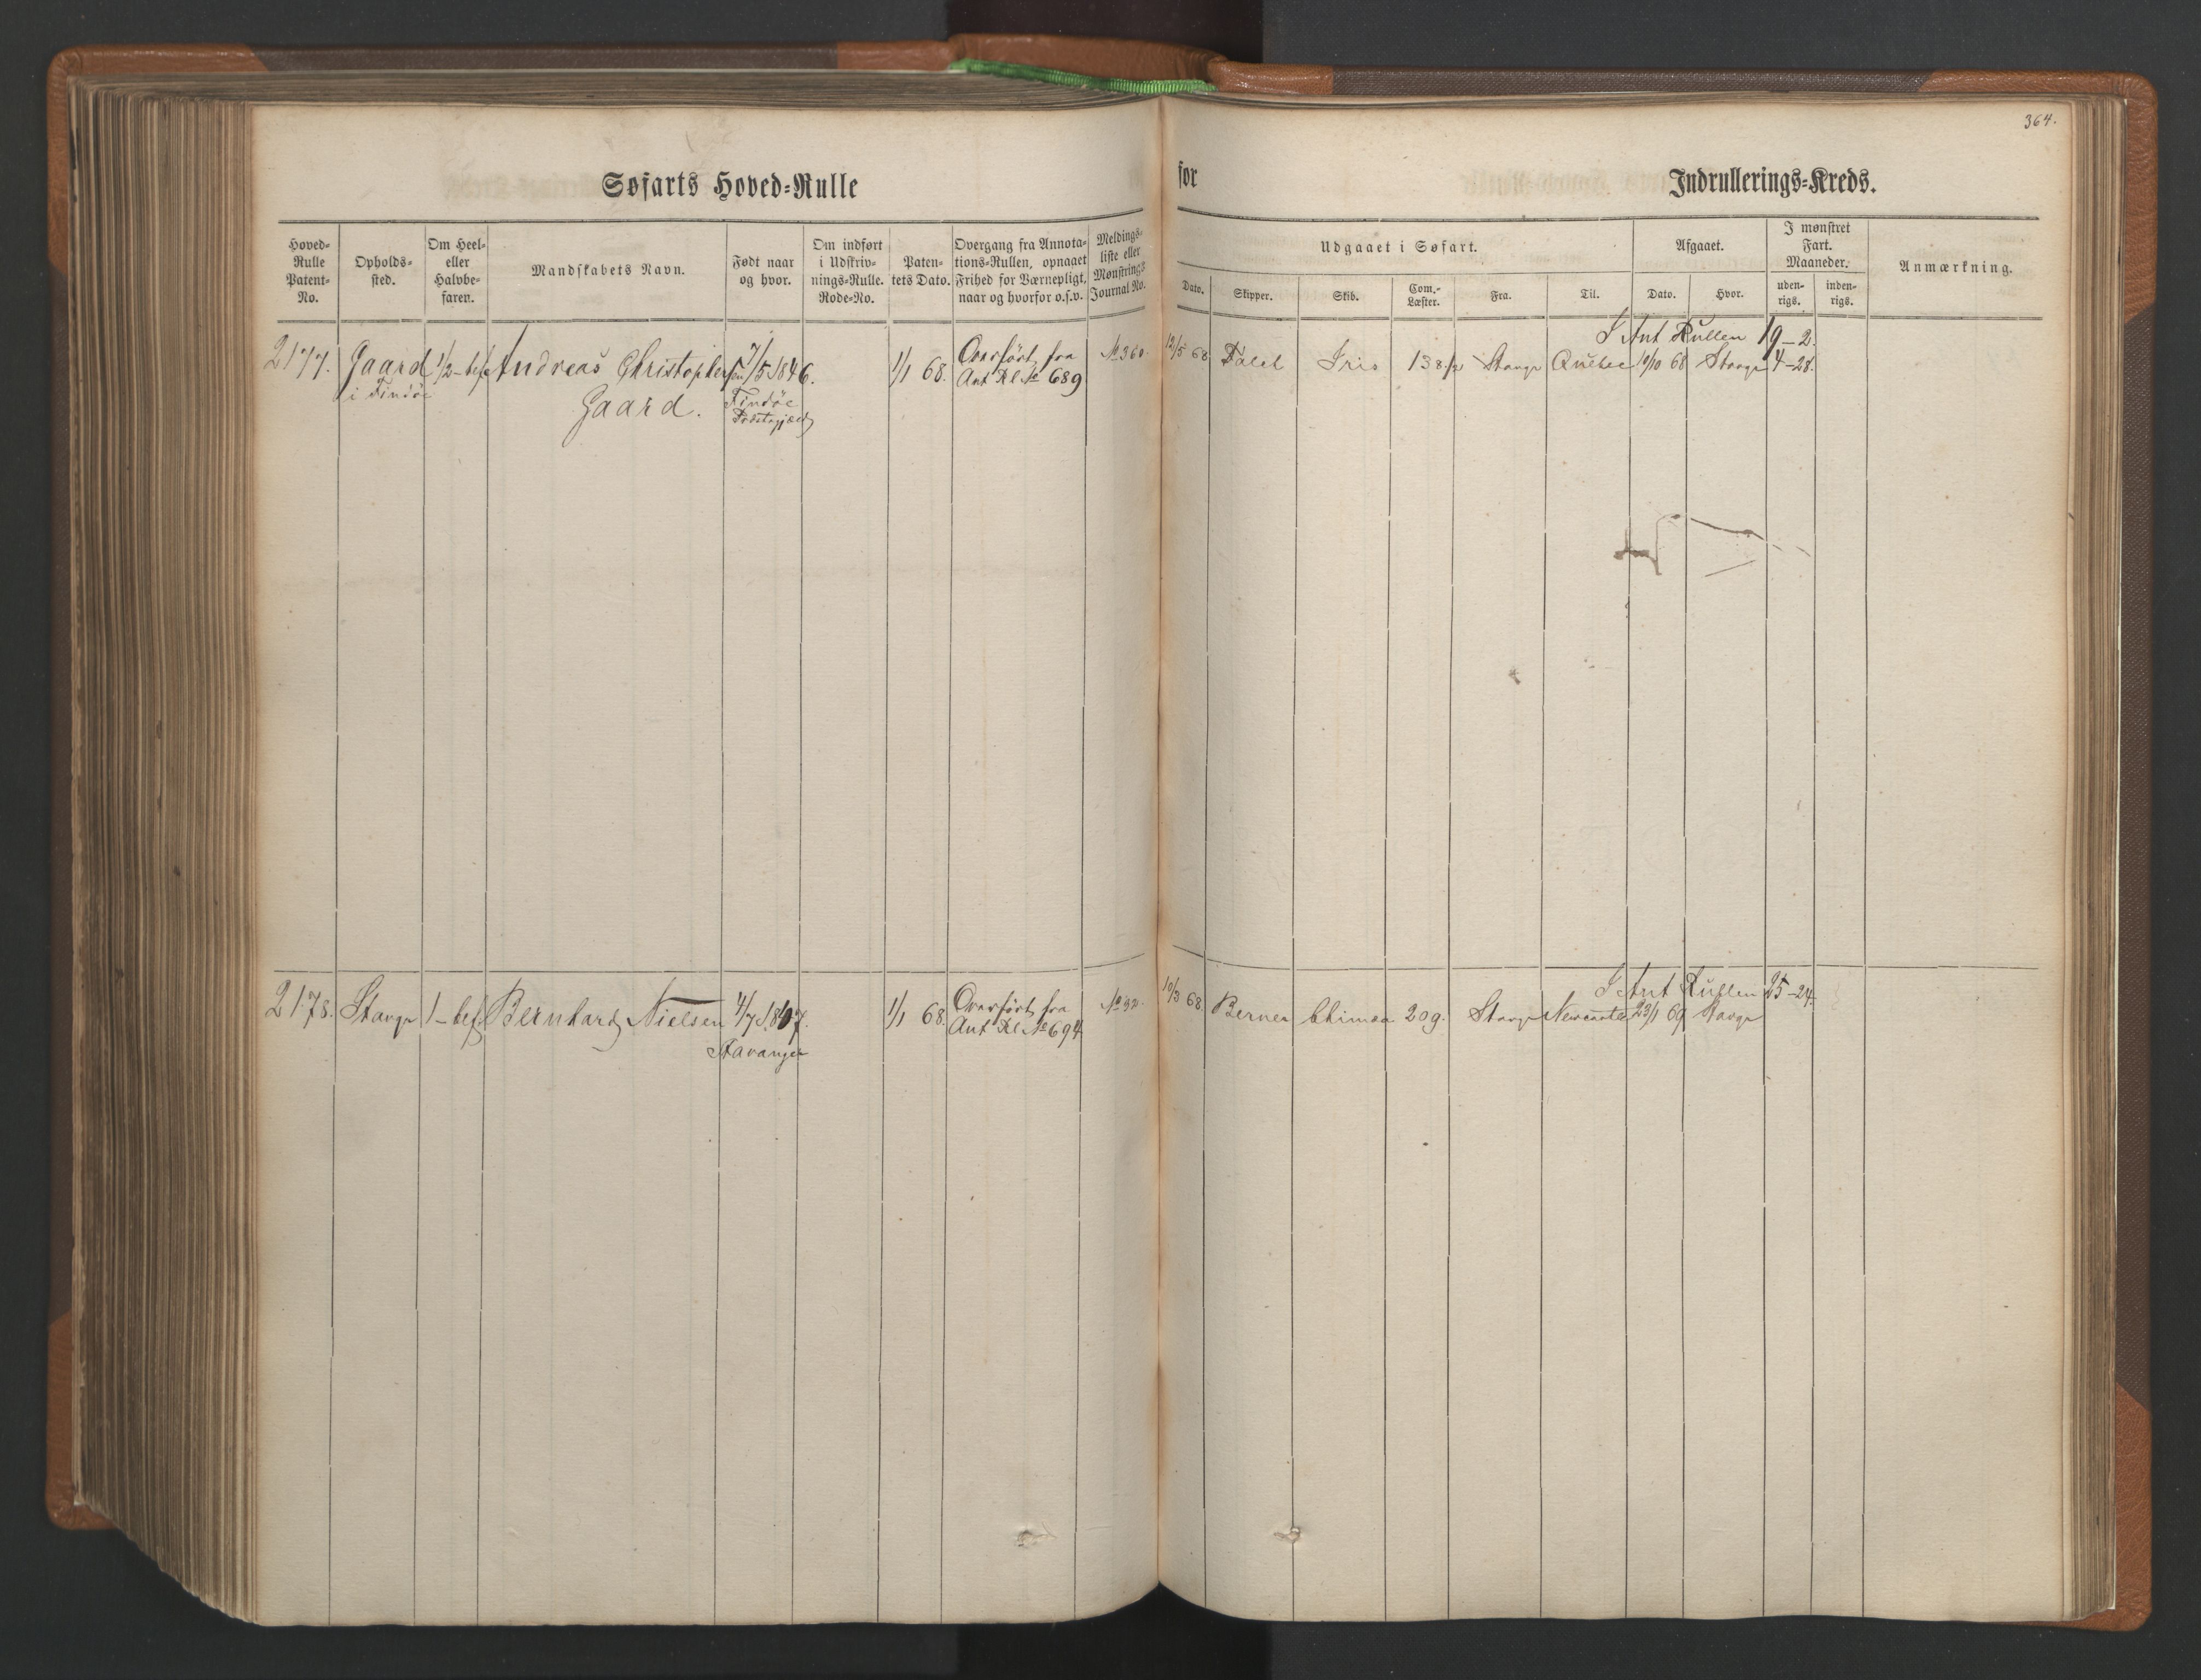 364.
Søfarts Hoved=Rulle for Indrullerings=Kreds.
Hoved=Rulle Patent=No.
Opholds=sted.
Om Heel= eller Halvbe=faren.
Mandskabets Navn.
Født naar og hvor.
Om indført i Udskriv=nings=Rulle. Rode=No.
Paten=tets Dato.
Overgang fra Annota=tions=Rullen, opnaaet Frihed for Værnepligt, naar og hvorfor o.s.v.
Meldings=liste eller Mønstrings Journal No.
Udgaaet i Søfart.
Dato.
Skipper.
Skib.
Com.=Læster.
Fra.
Til.
Afgaaet.
Dato.
Hvor.
I mønstret Fart. Maaneder.
uden=rigs.
inden=rigs.
Anmærkning.
I Ant Rullen 19-2.
2177. Gaard 1/2-bef Andreas Christophersen 7/5 1846. 1/1 68. Overført fra No 360. 12/5 68 Iris 138 1/2 Stavgr Quebec 10/10 68 Stavgr 4-28.
i Findöe Gaard. Findöe Ant Rl No 689
Præstegjæld
I Ant Rullen 25-24.
2178. Stavgr 1-bef Bernhard Nielsen 4/7 1847. 1/1 68. Overført fra No 32. 10/3 68. Berner 209. Stavgr Newcastle 23/1 69 Stavgr
Stavanger Ant Rl No 694